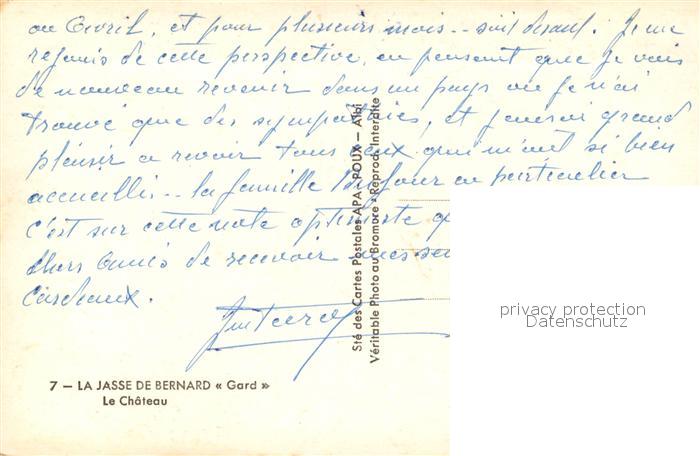 ou Avril, et pour plusieurs mois.. soit disant. Je me
réjouis de cette perspective, en pensant que je vais
de nouveau revenir dans un pays où je n'ai
trouvé que des sympathies, et j'aurai grand
plaisir à revoir tous ceux qui m'ont si bien
accueillis.. la famille en particulier
c'est sur cette note optimiste
chers Amis de recevoir mes
cordiaux.
Sté des Cartes Postales APA-POUX — Albi
Véritable Photo au Bromure - Reprod. Interdite
privacy protection
Datenschutz
7 — LA JASSE DE BERNARD « Gard »
Le Château